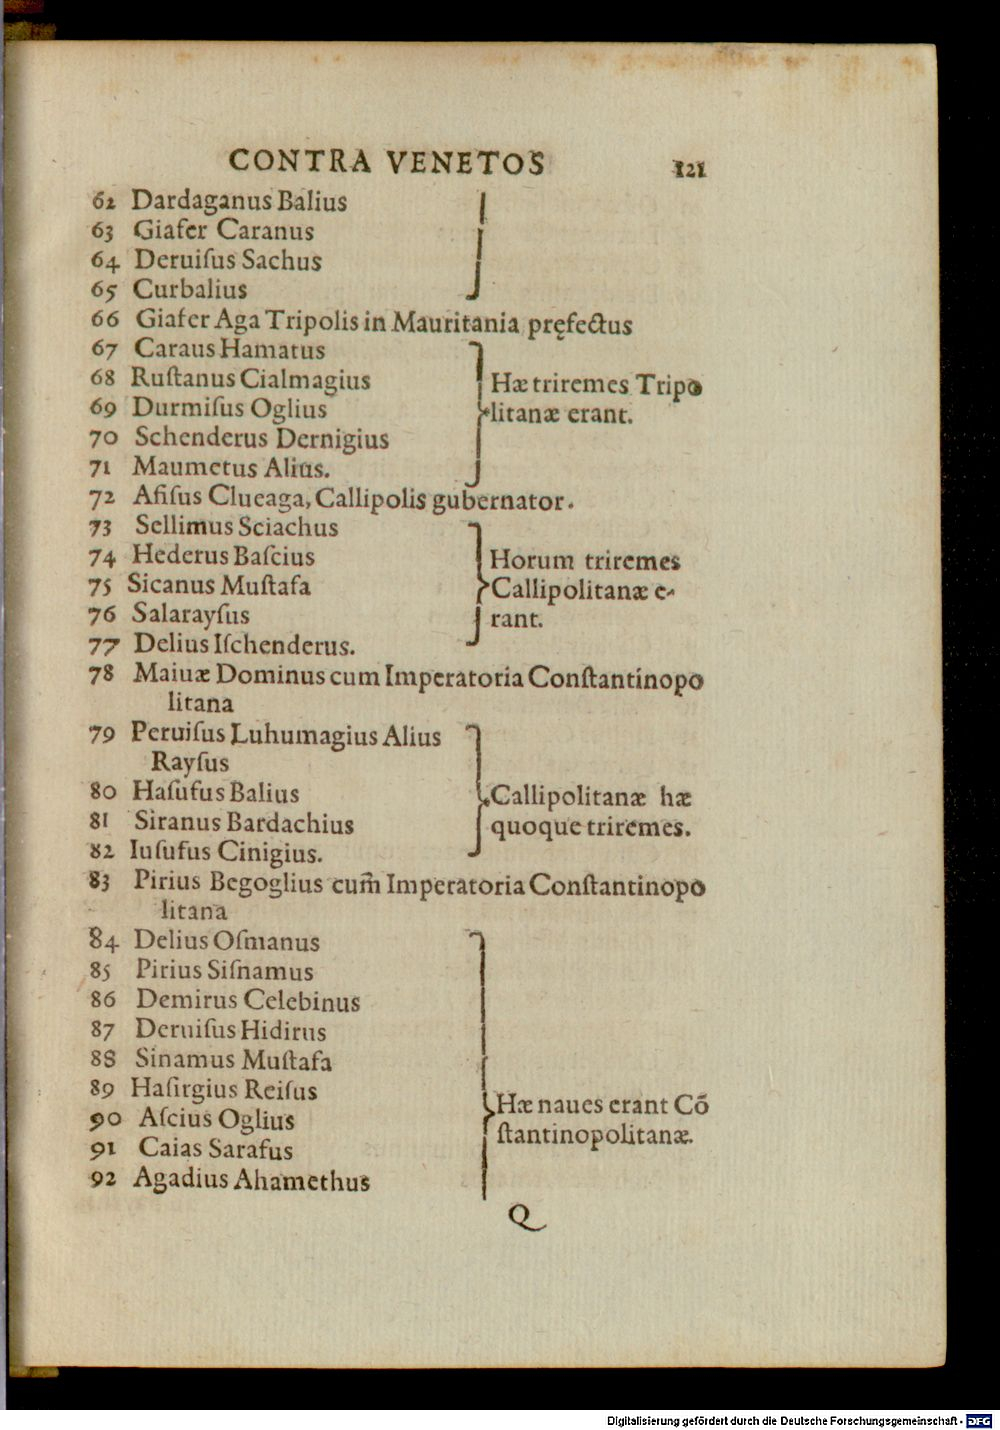 CONTRA VENETOS 121
62 Dardaganus Balius
63 Giafer Caranus
64 Deruiſus Sachus
65 Curbalius
66 Giafer Aga Tripolis in Mauritania pręfectus
67 Caraus Hamatus
68 Ruſtanus Cialmagius
69 Durmiſus Oglius
70 Schenderus Dernigius
71 Maumetus Alius.
Hæ triremes Tripo
litanæ erant.
72 Afiſus Clueaga, Callipolis gubernator.
73 Sellimus Sciachus
74 Hederus Baſcius
75 Sicanus Muſtafa
76 Salarayſus
77 Delius Iſchenderus.
Horum triremes
Callipolitanæ e-
rant.
78 Maiuæ Dominus cum Imperatoria Conſtantinopo
litana
79 Peruiſus Luhumagius Alius
Rayſus
80 Haſufus Balius
81 Siranus Bardachius
82 Iuſufus Cinigius.
Callipolitanæ hæ
quoque triremes.
83 Pirius Begoglius cum̃ Imperatoria Conſtantinopo
litana
84 Delius Oſmanus
85 Pirius Siſnamus
86 Demirus Celebinus
87 Deruiſus Hidirus
88 Sinamus Muſtafa
89 Haſirgius Reiſus
90 Aſcius Oglius
91 Caias Sarafus
92 Agadius Ahamethus
Hæ naues erant Cõ
ſtantinopolitanæ.
Q
Digitalisierung gefördert durch die Deutsche Forschungsgemeinschaft - DFG